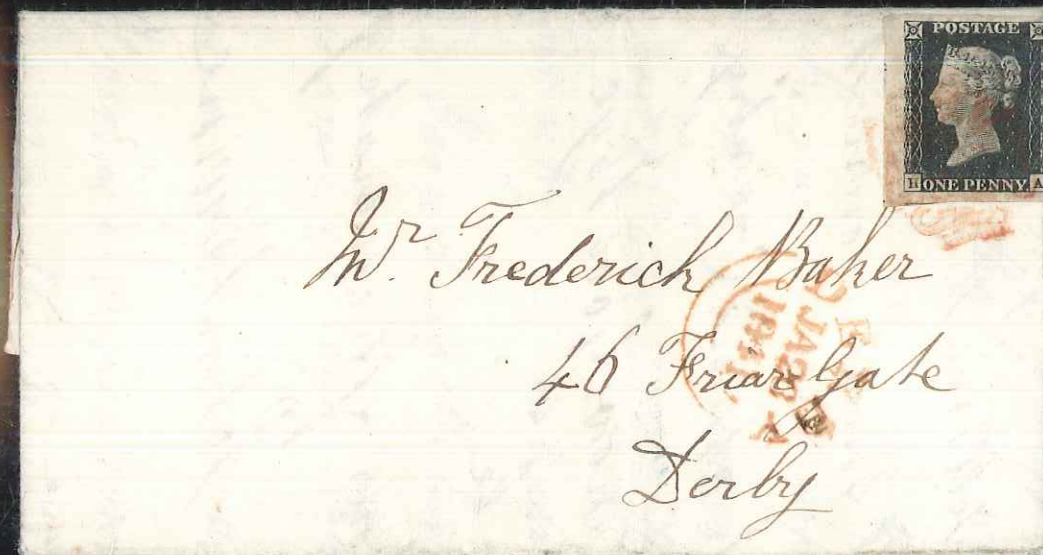 POSTAGE
ONE PENNY.
H A
Mr. Frederick Baker
46 Friar Gate
Derby
JA 28
1841